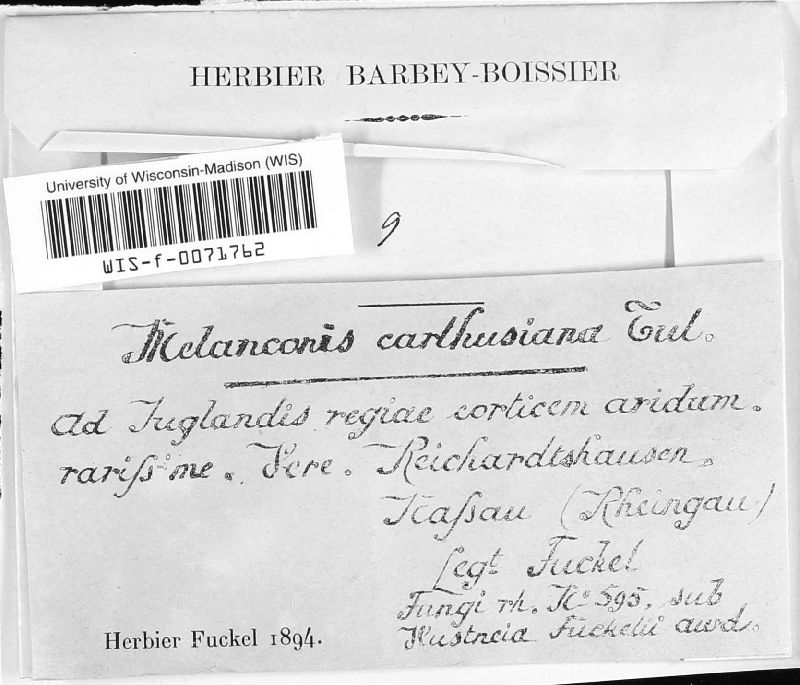 HERBIER BARBEY-BOISSIER
University of Wisconsin-Madison (WIS)
WIS-f-0071762
9
Melanconis carthusiana Tul.
Ad Juglandis regiae corticem aridum.
rarissime. Vere. Reichardtshausen.
Nassau (Rheingau)
Legt Fuckel
Fungi rh. No 595. sub
Fuckelii awd.
Herbier Fuckel 1894.